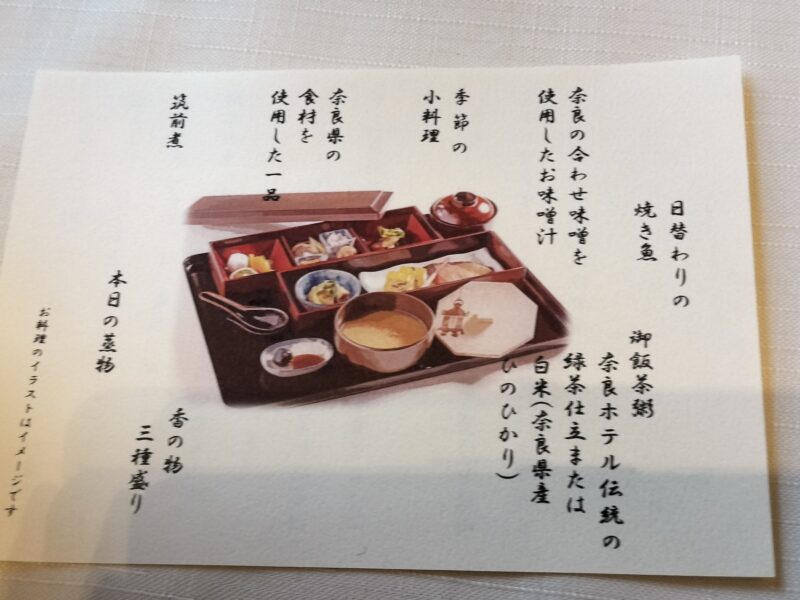 日替わりの
焼き魚
奈良の合わせ味噌を
使用したお味噌汁
季節の
小料理
奈良県の
食材を
使用した一品
筑前煮
御飯茶粥
奈良ホテル伝統の
緑茶仕立または
白米(奈良県産
ひのひかり)
本日の蒸物
香の物
三種盛り
お料理のイラストはイメージです